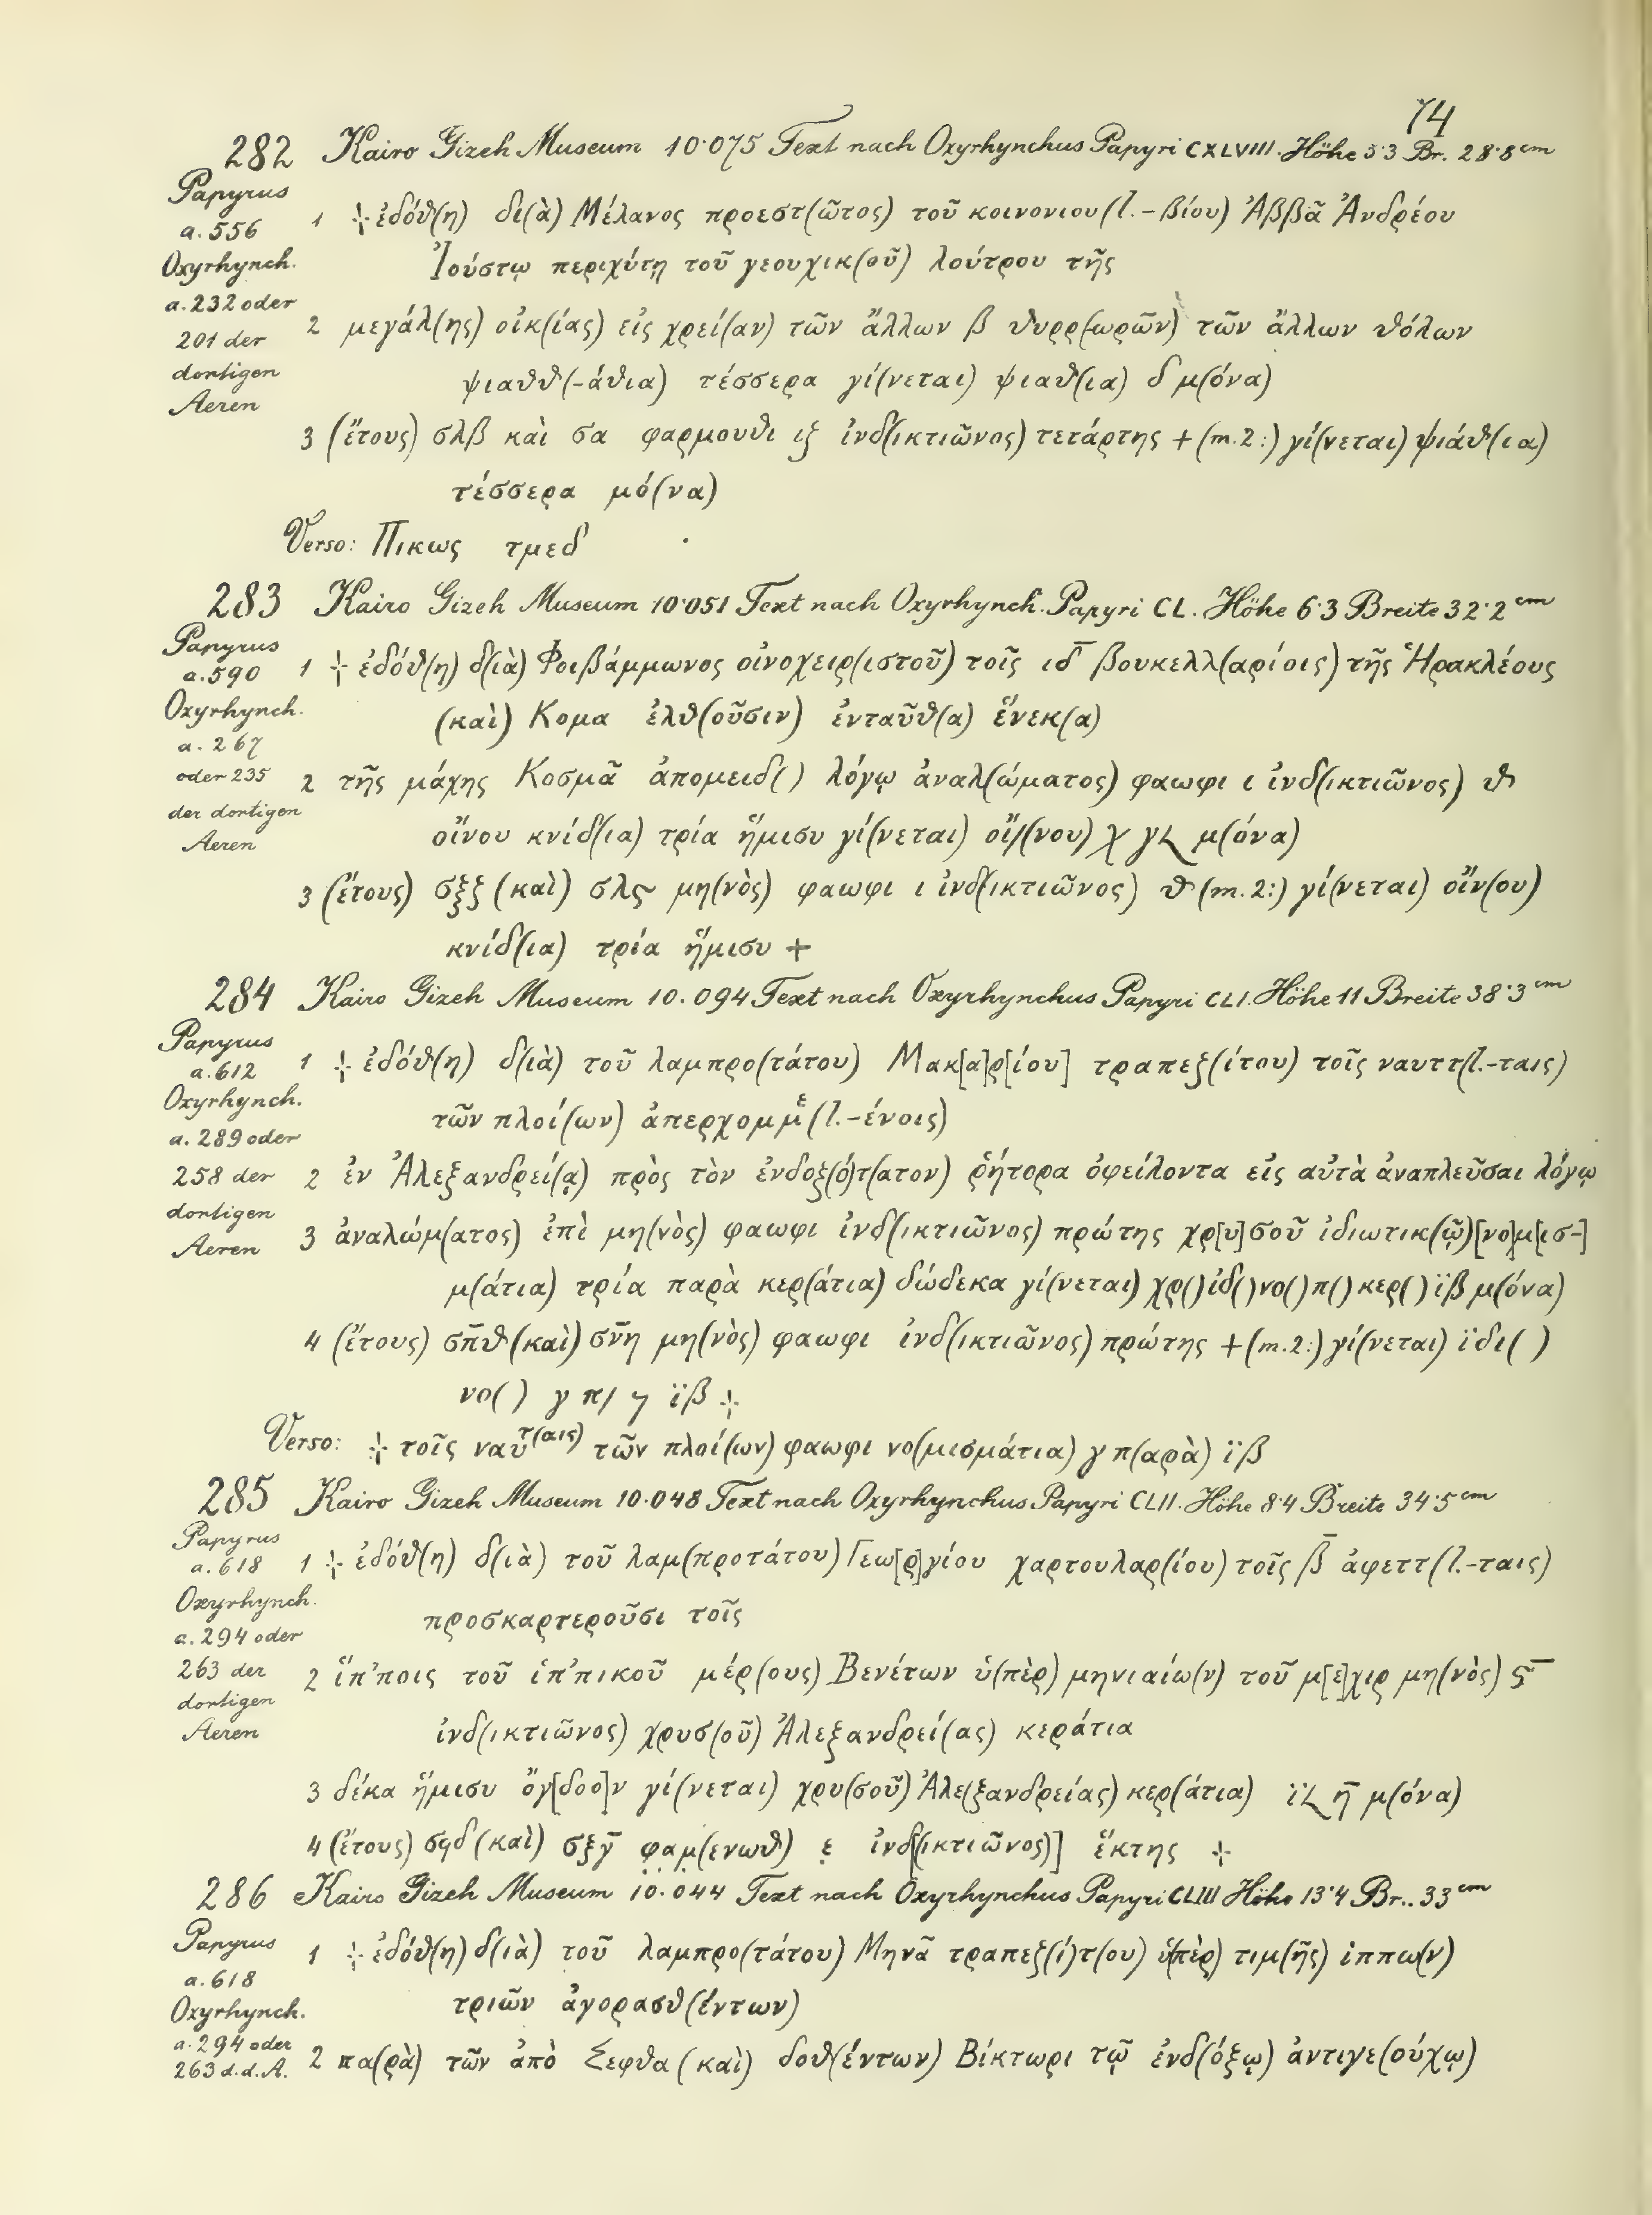 74
282 Kairo Gizeh Museum 10·075 Text nach Oxyrhynchus Papyri CXLVIII. Höhe 5·3 Br. 28·8 cm
Papyrus
a. 556
Oxyrhynch.
a. 232 oder
201 der
dortigen
Aeren
1 ⳨ ἐδόθ(η) δι(ὰ) Μέλανος προεστ(ῶτος) τοῦ κοινονιου (l. -βίου) Ἀββᾶ Ἀνδρέου
Ἰούστῳ περιχύτῃ τοῦ γεουχικ(οῦ) λούτρου τῆς
2 μεγάλ(ης) οἰκ(ίας) εἰς χρεί(αν) τῶν ἄλλων β θυρρ(ωρῶν) τῶν ἄλλων θόλων
ψιαθθ(-άθια) τέσσερα γί(νεται) ψιαθ(ια) δ μ(όνα)
3 (ἔτους) σλβ καὶ σα φαρμουθι ιξ ἰνδ(ικτιῶνος) τετάρτης + (m. 2:) γί(νεται) ψιάθ(ια)
τέσσερα μό(να)
Verso: Πικως τμεδ
283 Kairo Gizeh Museum 10·051 Text nach Oxyrhynch. Papyri CL. Höhe 6·3 Breite 32·2 cm
Papyrus
a. 590
Oxyrhynch.
a. 267
oder 235
der dortigen
Aeren
1 ⳨ ἐδόθ(η) δ(ιὰ) Φοιβάμμωνος οἰνοχειρ(ιστοῦ) τοῖς ιδ̅ βουκελλ(αρίοις) τῆς Ἡρακλέους
(καὶ) Κομα ἐλθ(οῦσιν) ἐνταῦθ(α) ἕνεκ(α)
2 τῆς μάχης Κοσμᾶ ἀπομειδ( ) λόγῳ ἀναλ(ώματος) φαωφι ι ἰνδ(ικτιῶνος) θ
οἴνου κνίδ(ια) τρία ἥμισυ γί(νεται) οἴ/(νου) χ γ𐅵 μ(όνα)
3 (ἔτους) σξξ (καὶ) σλϛ μη(νὸς) φαωφι ι ἰνδ(ικτιῶνος) θ (m. 2:) γί(νεται) οἴν(ου)
κνίδ(ια) τρία ἥμισυ +
284 Kairo Gizeh Museum 10.094 Text nach Oxyrhynchus Papyri CLI. Höhe 11 Breite 38·3 cm
Papyrus
a. 612
Oxyrhynch.
a. 289 oder
258 der
dortigen
Aeren
1 ⳨ ἐδόθ(η) δ(ιὰ) τοῦ λαμπρο(τάτου) Μακ[α]ρ[ίου] τραπεξ(ίτου) τοῖς ναυττ(l. -ταις)
τῶν πλοί(ων) ἀπερχομμε (l. -ένοις)
2 ἐν Ἀλεξανδρεί(ᾳ) πρὸς τὸν ἐνδοξ(ό)τ(ατον) ῥήτορα ὀφείλοντα εἰς αὐτὰ ἀναπλεῦσαι λόγῳ
3 ἀναλώμ(ατος) ἐπὶ μη(νὸς) φαωφι ἰνδ(ικτιῶνος) πρώτης χρ[υ]σοῦ ἰδιωτικ(ῷ) [νο]μ[ισ-]
μ(άτια) τρία παρὰ κερ(άτια) δώδεκα γί(νεται) χρ( ) ἰδ( ) νο( ) π( ) κερ( ) ϊβ μ(όνα)
4 (ἔτους) σπ̅θ (καὶ) σν̅η μη(νὸς) φαωφι ἰνδ(ικτιῶνος) πρώτης + (m. 2:) γί(νεται) ϊδι( )
νο( ) γ π/ 7 ϊβ ⳨
Verso: ⳨ τοῖς ναυτ(αις) τῶν πλοί(ων) φαωφι νο(μισμάτια) γ π(αρὰ) ϊβ
285 Kairo Gizeh Museum 10.048 Text nach Oxyrhynchus Papyri CLII. Höhe 8·4 Breite 34·5 cm
Papyrus
a. 618
Oxyrhynch.
a. 294 oder
263 der
dortigen
Aeren
1 ⳨ ἐδόθ(η) δ(ιὰ) τοῦ λαμ(προτάτου) Γεω[ρ]γίου χαρτουλαρ(ίου) τοῖς β̅ ἀφεττ (l. -ταις)
προσκαρτεροῦσι τοῖς
2 ἵπ'ποις τοῦ ἱπ'πικοῦ μέρ(ους) Βενέτων ὑ(πὲρ) μηνιαίω(ν) τοῦ μ[ε]χιρ μη(νὸς) ϛ̅
ἰνδ(ικτιῶνος) χρυσ(οῦ) Ἀλεξανδρεί(ας) κεράτια
3 δέκα ἥμισυ ὄγ[δοο]ν γί(νεται) χρυ(σοῦ) Ἀλε(ξανδρείας) κερ(άτια) ϊ𐅵 η̅ μ(όνα)
4 (ἔτους) σϙδ (καὶ) σξγ̅ φαμ(ενωθ) ε̣ ἰνδ[(ικτιῶνος)] ἕκτης ⳨
286 Kairo Gizeh Museum 10.044 Text nach Oxyrhynchus Papyri CLIII Höhe 13·4 Br.. 33 cm
Papyrus
a. 618
Oxyrhynch.
a. 294 oder
263 d. d. A.
1 ⳨ ἐδόθ(η) δ(ιὰ) τοῦ λαμπρο(τάτου) Μηνᾶ τραπεξ(ί)τ(ου) ὑ(πὲρ) τιμ(ῆς) ἱππω(ν)
τριῶν ἀγορασθ(έντων)
2 πα(ρὰ) τῶν ἀπὸ Σεφθα (καὶ) δοθ(έντων) Βίκτωρι τῷ ἐνδ(όξῳ) ἀντιγε(ούχῳ)